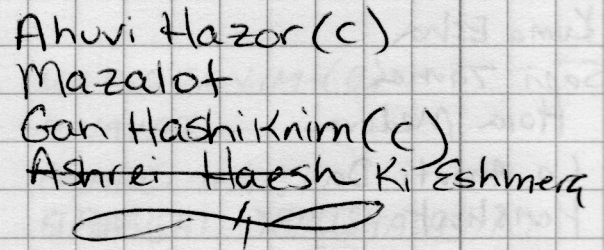 Ahuvi Hazor (c)
Mazalot
Gan HashiKnim (c)
Ashrei Haesh Ki Eshmera